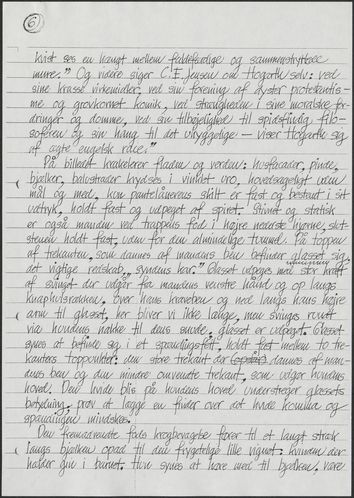 6
kvist ses en hangt mellem faldefærdige og sammenstyrtede
mure." Og videre siger C.E. Jensen om Hogarth selv: ved
sine krasse virkemidler, ved sin forening af dyster protestantis-
me og grovkornet komik, ved strengheden i sine moralske for-
dringer og domme, ved sin tilbøjelighed til spidsfindig filo-
soferen og sin hang til det uhyggelige – viser Hogarth sig
af ægte engelsk race."
På billedet krakelerer fladen og verden: husfacader, pinde,
bjælker, balustrader krydses i vinklet uro, hovedsageligt uden
mål og med, kun pantelånerens skilt er fast og bestant i sit
udtryk, holdt fast og udpeget af spiret. Stivnet og statisk
er også manden ved trappens fod i højre nederste hjørne, skt-
stenen holdt fast, uden for den almindelige tummel. På toppen
af trekanten, som dannes af mandens ben befinder glasset sig
det vigtige redskab, "syndens kar." Glasset udpeges med stor kraft
af svinget der udgår fra mandens venstre hånd og op langs
knaphulsrækken, over hans kraveben og ned langs hans højre
arm til glasset, her bliver vi ikke længe, men svinges rundt
via hundens nakke til dens snude, glasset er udpeget. Glasset
synes at befinde sig i et spændingsfelt, holdt fast mellem to tre-
kanters toppunkter: den store trekant der dannes af man-
dens ben og den mindre omvendte trekant, som udgør hundens
hoved. Den hvide blis på hundens hoved understreger glassets
betydning, prøv at lægge en finger over det hvide komma og
spændingen mindskes.
Den fremadrettede fods krogbevægelse fører til et langt stræk
langs bjælken opad til den frygtelige lille vignet: kvinden der
hælder gin i barnet. Hun synes at høre med til bjælken, være